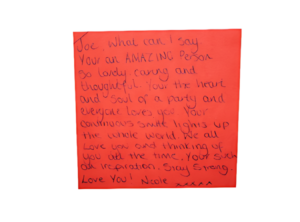 Joe, What can I say
Your an AMAZING Person
So lovely caring and
thoughtful. Your the heart
and Soul of a party and
everyone loves you. Your
continuous smile lights up
the whole world. We all
love you and thinking of
you all the time. Your such
an inspiration. Stay Strong
Love You! Nicole xxxxx